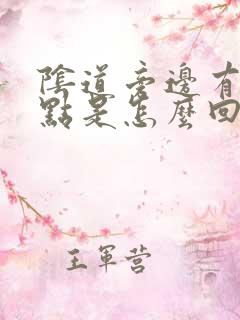 陰道旁邊有
點是怎麼回
王軍营